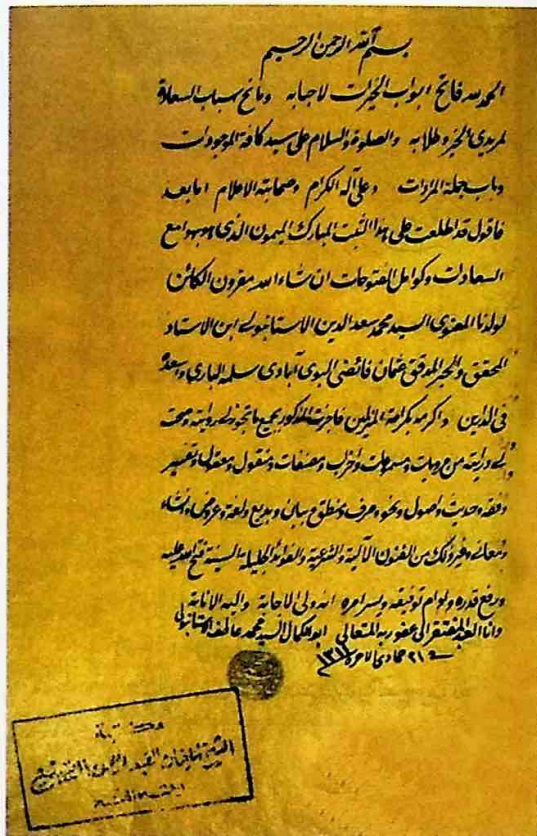 بسم الله الرحمن الرحيم
الحمد لله فاتح ابواب الخيرات لاحبابه ومانح اسباب السعادة
لمريدى الخير وطلابه والصلوة والسلام على سيد كافة الموجودات
وباب جملة المرادات وعلى آله الكرام وصحابته الاعلام اما بعد
فاقول قد اطلعت على هذا الثبت المبارك الميمون الذى هو بهوامع
السعادات وكوامل الفتوحات ان شاء الله مقرون الكائن
لولدنا المعنوى السيد محمد سعد الدين الاستانبولى ابن الاستاد
المحقق والحبر المدقق عثمان فائضى البوى آبادى سلمه البارى وسعده
فى الدارين واكرمه بكرامة المنزلين فاجزت المذكور بجميع ما تجوز لى روايته وصحت
لى درايته من مرويات ومسموعات واحزاب ومصنفات ومنقول ومعقول وتفسير
وفقه وحديث واصول ونحو وصرف ومنطق وبيان وبديع ولغة وعروض وانشاء
ومعانى وغير ذلك من الفنون الآلية والشرعية والفوائد الجليلة السنية فتح الله عليه
ورفع قدره وادام توفيقه ويسر امره انه ولى الاجابة واليه الانابة
وانا العبد المفتقر الى عفو ربه المتعالى ابو الكمال السيد محمد الاستانبولى
فى ٢١ جمادى الآخرة ١٣١١
مكتبة
الشيخ